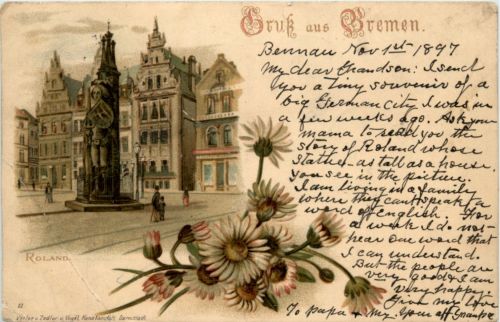 Gruß aus Bremen.
Bennau Nov 1st 1897
My dear Grandson: I send
you a tiny souvenir of a
big German city I was in
a few weeks ago. Ask your
mama to read you the
story of Roland whose
statue - as tall as a house.
you see in the picture.
I am living in a family
where they can't speak a
word of English. For
a week I do not
hear one word that
I can understand.
But the people are
very good & I am
very happy.
Give my love
To papa & my
ROLAND.
Verlag v. Zedler u. Vogel, Kunstanstalt, Darmstadt.